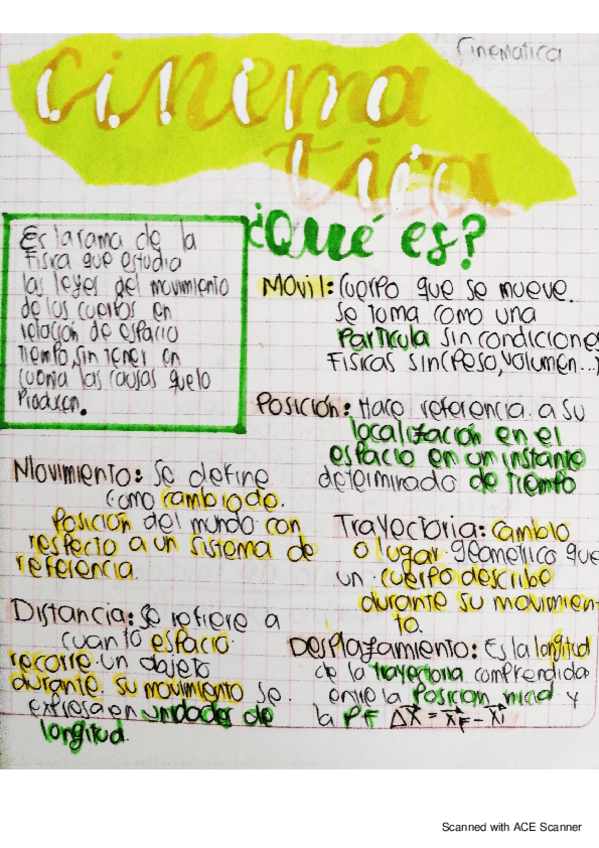 Cinematica
cinema
tica
¿Qué es?
Es la rama de la
Fisica que estudia
las leyes del movimiento
de los cuerpos en
relación de espacio
tiempo, sin tener en
cuenta las causas que lo
Producen.
Movil: Cuerpo que se mueve.
Se toma como una
Particula sin condiciones
Fisicas sin (Peso, Volumen...)
Posición: Hace referencia a su
localización en el
espacio en un instante
determinado de tiempo
Movimiento: Se define
como cambio de
Posición del mundo con
respecto a un sistema de
referencia.
Trayectoria: Cambio
o lugar geometico que
un cuerpo describe
durante su movimien-
to.
Distancia: Se refiere a
cuanto espacio
recorre un objeto
durante su movimiento se
expresa en unidades de
longitud.
Desplazamiento: Es la longitud
de la trayectoria comprendida
entre la Posición inicial y
la PF ΔX = XF - Xi
Scanned with ACE Scanner